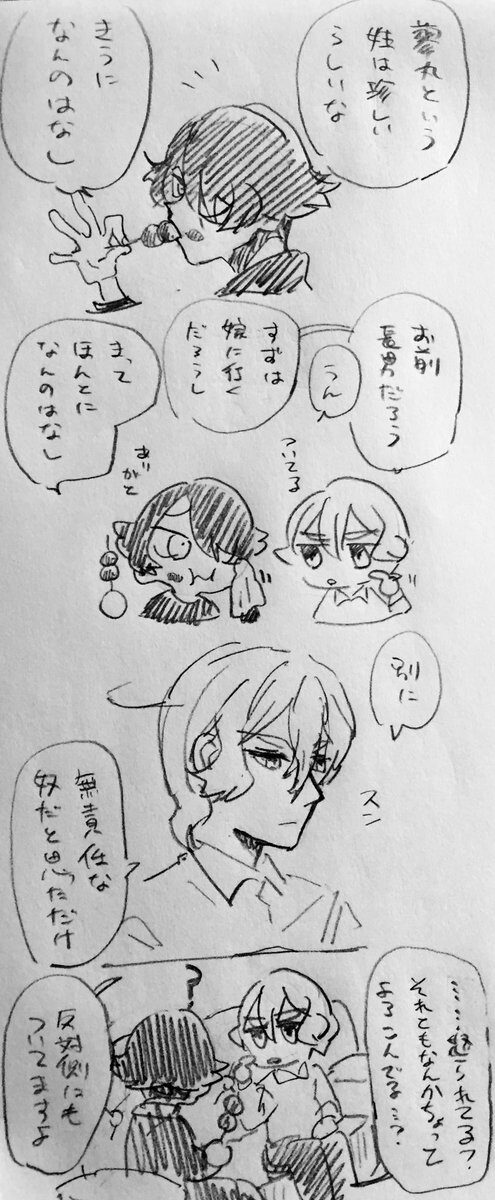 蓼丸という
姓は珍しい
らしいな
きうに
なんのはなし
お前
長男だろう
うん
すずは
嫁に行く
だろうし
まって
ほんとに
なんのはなし
ついてる
ありがと
別に
スン
無責任な
奴だと思っただけ
……怒られてる？
それともなんかちょって
よろこんでる…？
？
反対側にも
ついてますよ